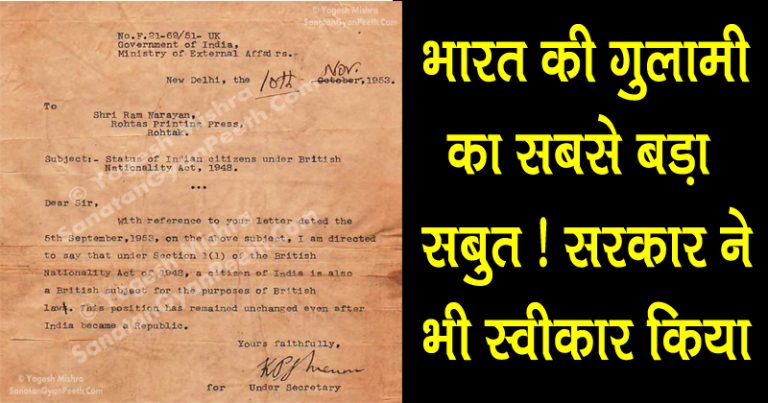 © Yogesh Mishra
SanatanGyanPeeth.Com
No.F.21-69/51- UK
Government of India,
Ministry of External Affairs.
Nov.
New Delhi, the 10th October, 1953.
To
Shri Ram Narayan,
Rohtas Printing Press,
Rohtak.
Subject:- Status of Indian citizens under British
Nationality Act, 1948.
...
Dear Sir,
With reference to your letter dated the
5th September, 1953, on the above subject, I am directed
to say that under Section 1(1) of the British
Nationality Act of 1948, a citizen of India is also
a British subject for the purposes of British
law. This position has remained unchanged even after
India became a Republic.
Yours faithfully,
for Under Secretary
© Yogesh Mishra
SanatanGyanPeeth.Com
© Yogesh Mishra
SanatanGyanPeeth.Com
भारत की गुलामी
का सबसे बड़ा
सबुत ! सरकार ने
भी स्वीकार किया